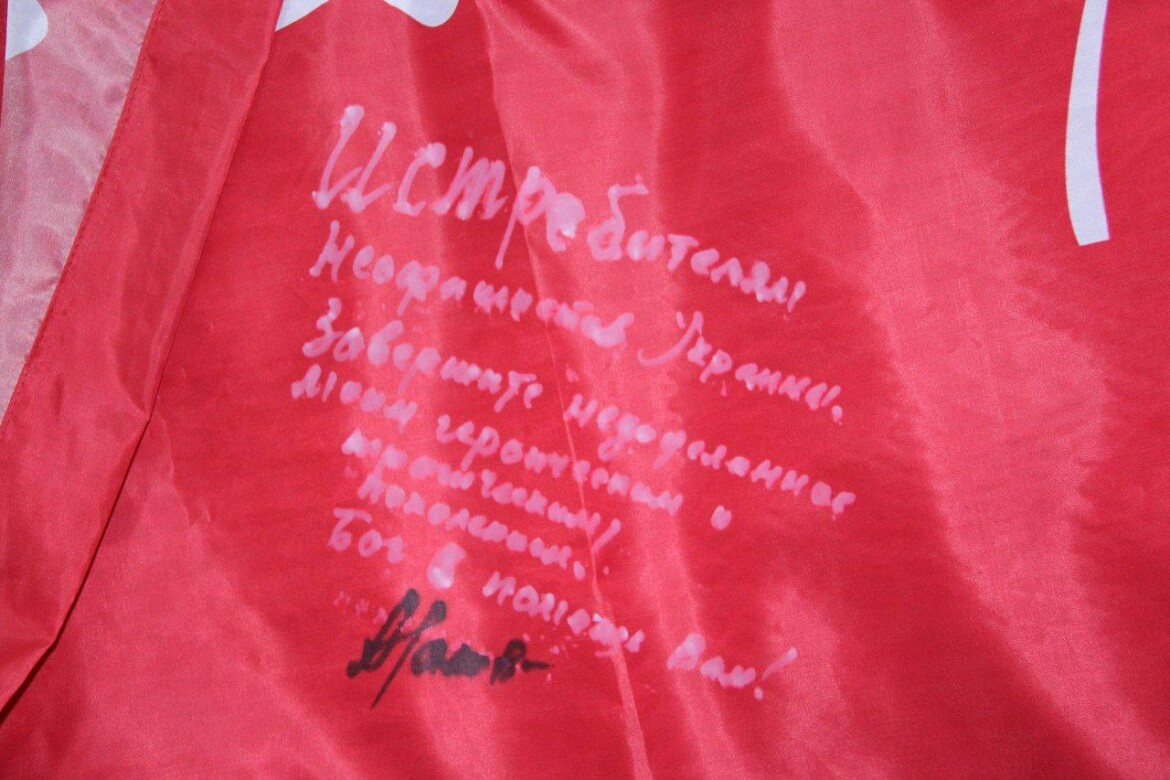 Истребителям
Неофашистов Украины.
Завершите недоделанное
Моим героическим и
трагическим!
Поколением.
Бог в помощь Вам!